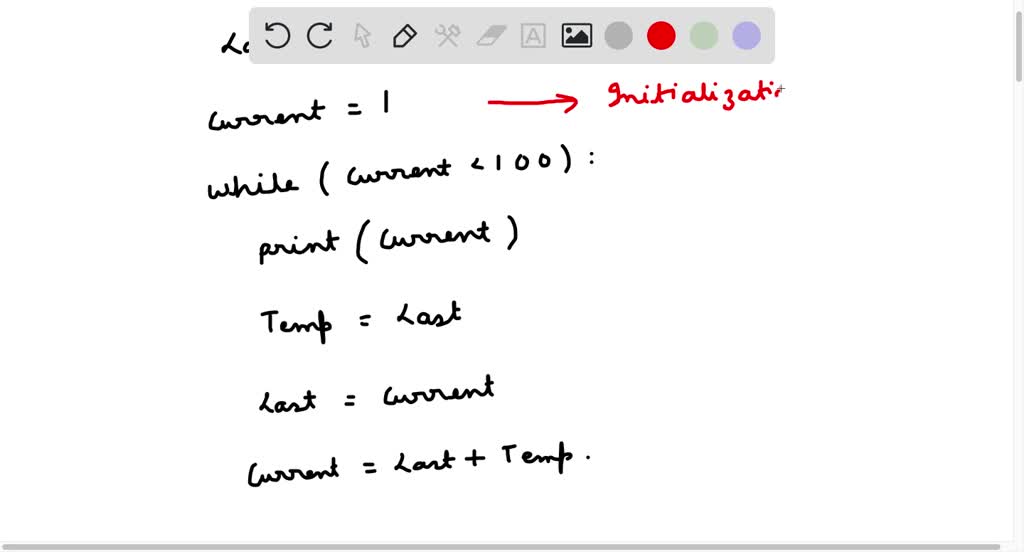 Current = 1 → Initializati
while ( Current < 100 ) :
print ( Current )
Temp = Last
Last = Current
Current = Last + Temp .